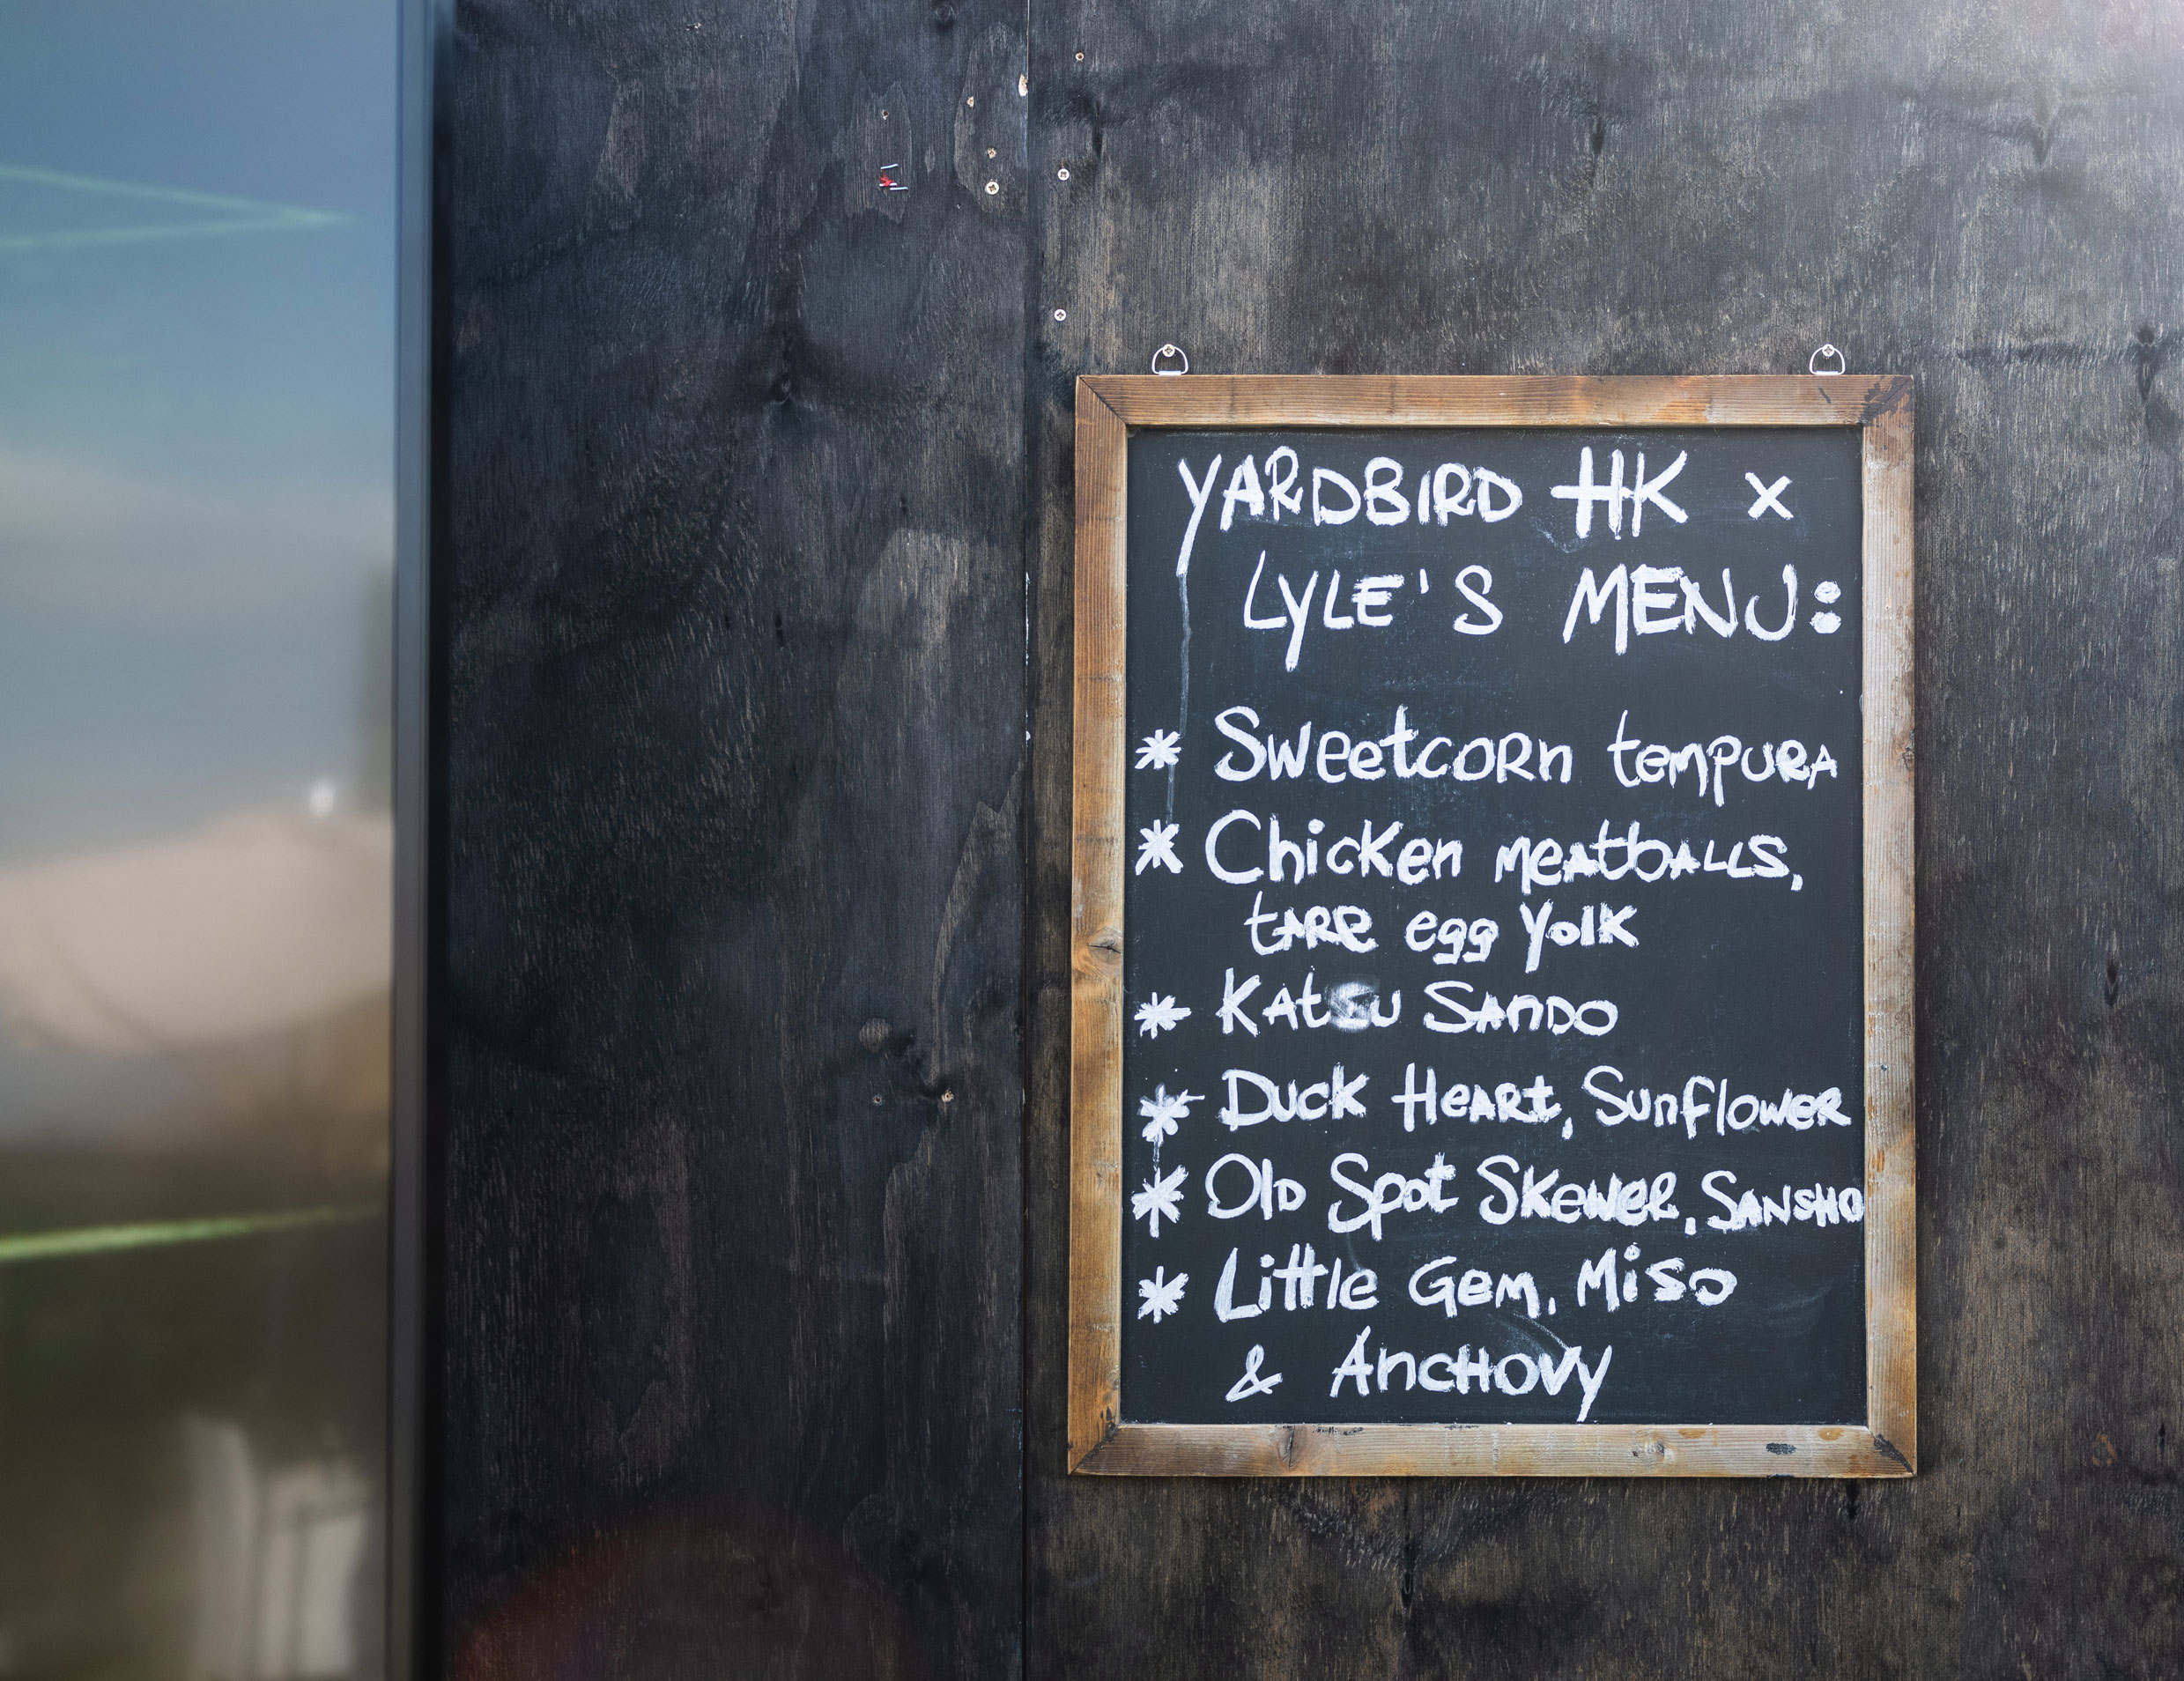 YARDBIRD HK x
LYLE'S MENU:
* Sweetcorn tempura
* Chicken meatballs,
tare egg yolk
* Katsu Sando
* Duck Heart, Sunflower
* Old Spot Skewer, Sansho
* Little Gem, Miso
& Anchovy